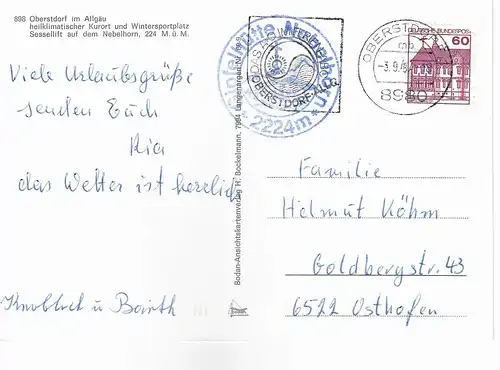 898 Oberstdorf im Allgäu
heilklimatischer Kurort und Wintersportplatz
Sessellift auf dem Nebelhorn, 224 M. ü. M.
Viele Urlaubsgrüße
senden Euch
Ria
das Wetter ist herrlich
Knobloch u Barth
Bodan-Ansichtskartenverlag H. Bockelmann, 7994 Langenargen
Gipfelhütte Nebelhorn
2224m
OBERSTDORF/ALLG.
OBERSTDORF
mb
-3.9.8
8980
DEUTSCHE BUNDESPOST
60
Familie
Helmut Köhm
Goldbergstr. 43
6522 Osthofen